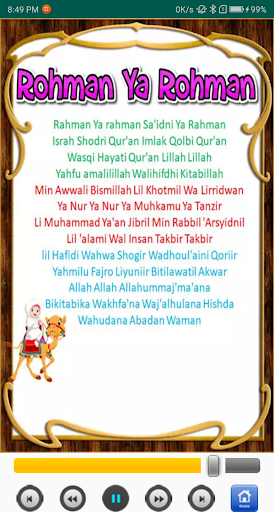 8:49 PM
99%
Rohman Ya Rohman
Rahman Ya rahman Sa'idni Ya Rahman
Israh Shodri Qur'an Imlak Qolbi Qur'an
Wasqi Hayati Qur'an Lillah Lillah
Yahfu amalilillah Walihifdhi Kitabillah
Min Awwali Bismillah Lil Khotmil Wa Lirridwan
Ya Nur Ya Nur Ya Muhkamu Ya Tanzir
Li Muhammad Ya'an Jibril Min Rabbil 'Arsyidnil
Lil 'alami Wal Insan Takbir Takbir
lil Hafidi Wahwa Shogir Wadhoul'aini Qoriir
Yahmilu Fajro Liyuniir Bitilawatil Akwar
Allah Allah Allahummaj'ma'ana
Bikitabika Wakhfa'na Waj'alhulana Hishda
Wahudana Abadan Waman
Home